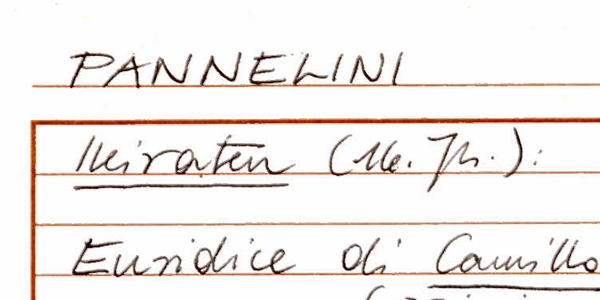 PANNELINI
Heiraten (16. Jh.):
Euridice di Camillo